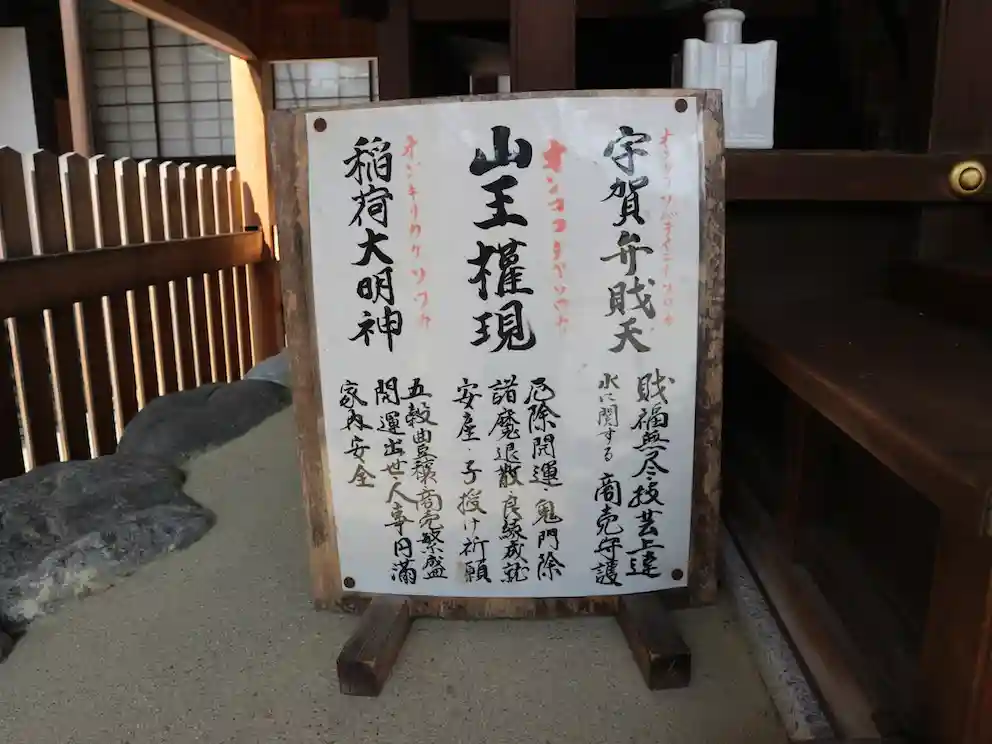 オンソラソバテイエイソワカ
宇賀弁戝天
戝福無尽・技芸上達
水に関する商売守護
山王権現
厄除開運・鬼門除
諸魔退散・良縁成就
安産・子授け祈願
オンキリカクソワカ
稲荷大明神
五穀豊穣・商売繁盛
開運出世・人事円満
家内安全